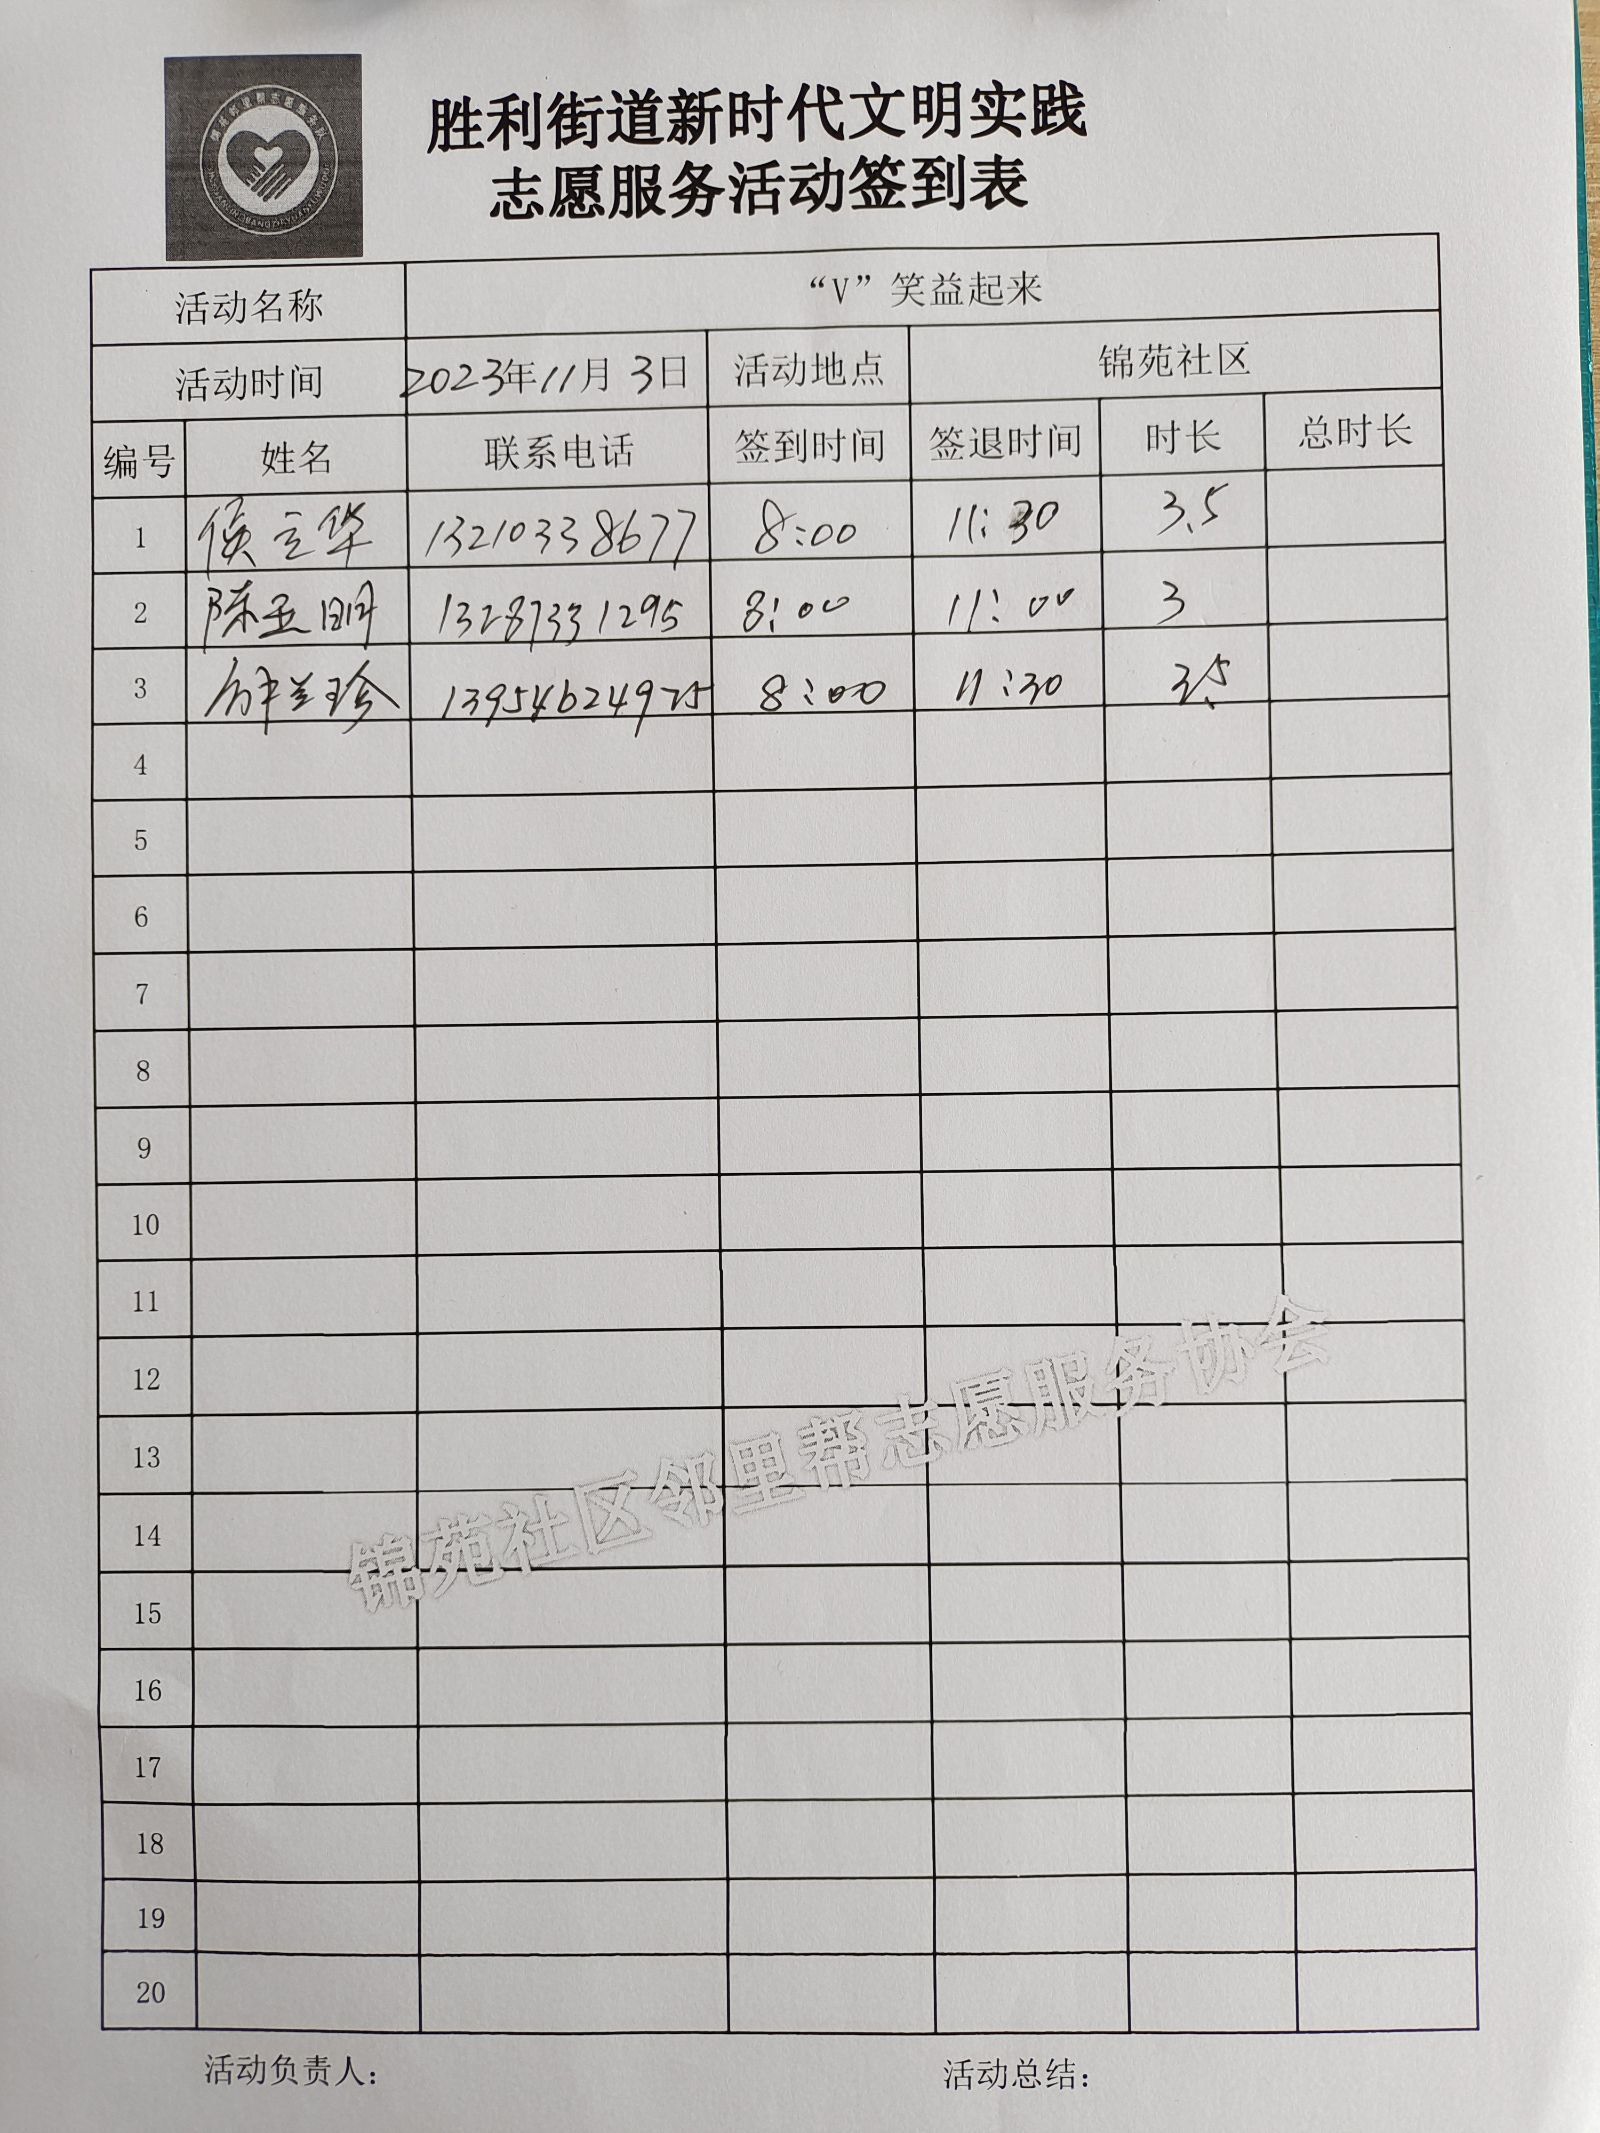 胜利街道新时代文明实践
志愿服务活动签到表
活动名称 “V”笑益起来
活动时间 2023年11月3日 活动地点 锦苑社区
编号 姓名 联系电话 签到时间 签退时间 时长 总时长
1 侯立华 13210338677 8:00 11:30 3.5
2 陈亚明 13287331295 8:00 11:00 3
3 兰珍 13954624975 8:00 11:30 3.5
4
5
6
7
8
9
10
11
12
13
14
15
16
17
18
19
20
锦苑社区邻里帮志愿服务协会
活动负责人： 活动总结：